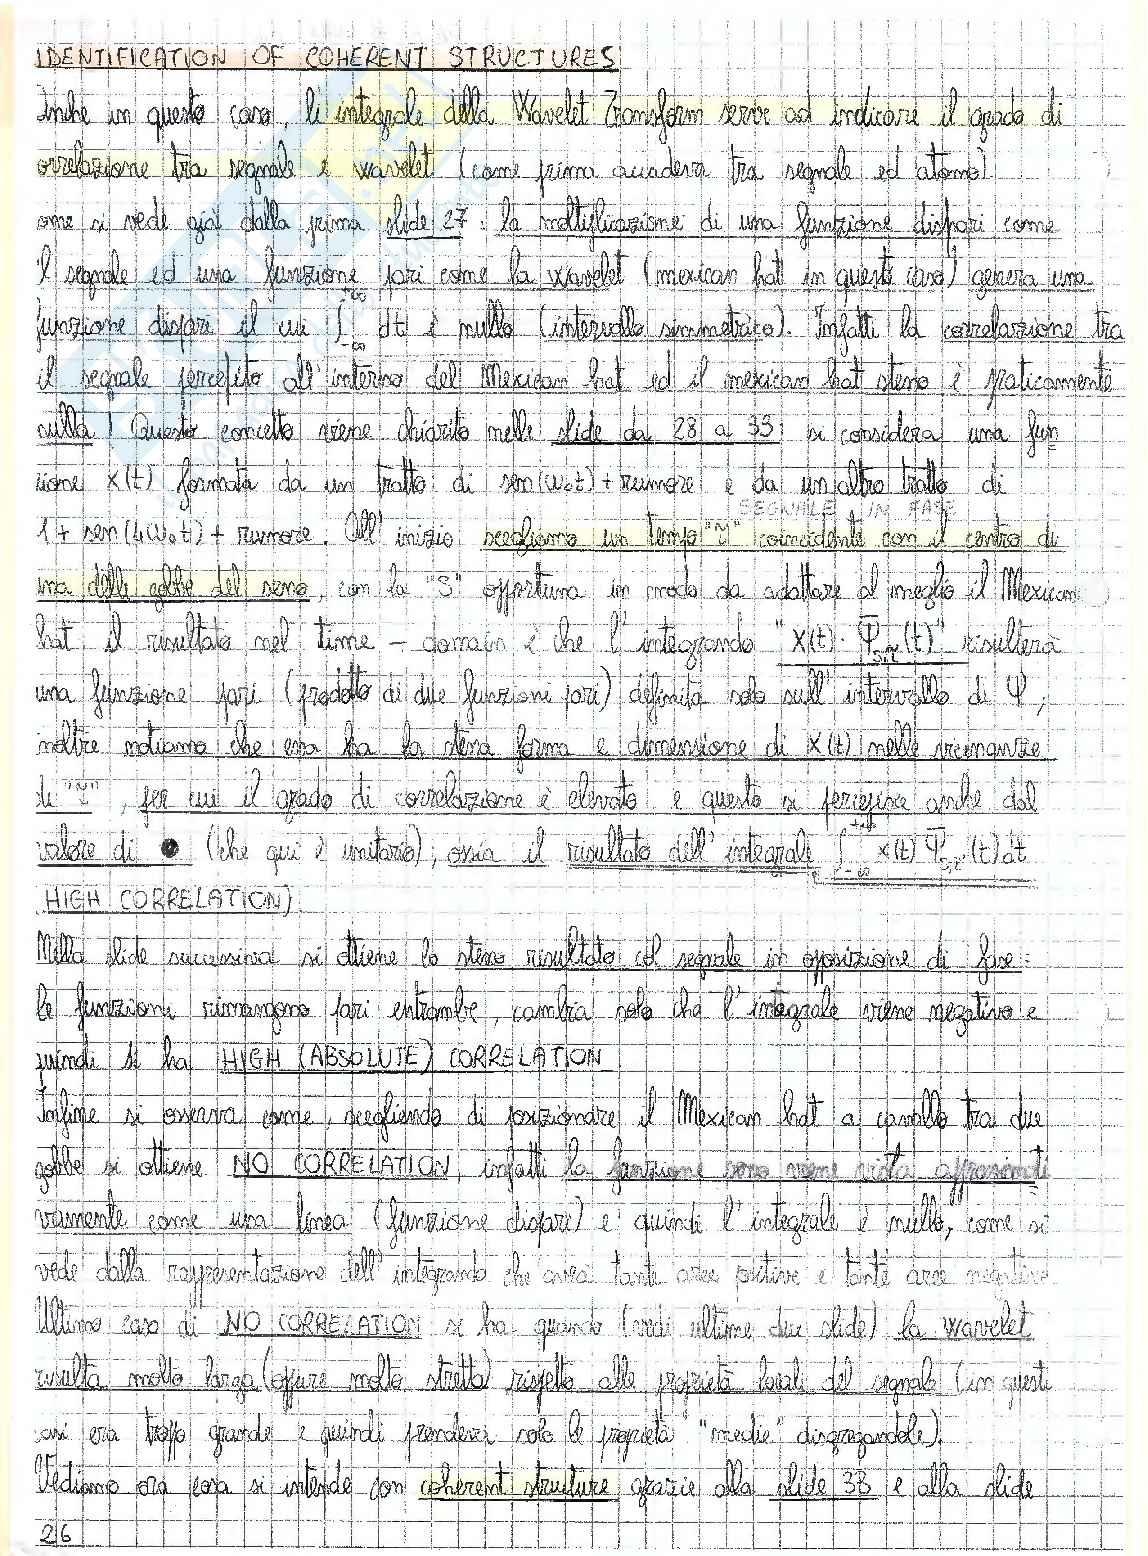 IDENTIFICATION OF COHERENT STRUCTURES
Anche in questo caso, li integrale della Wavelet Transform serve ad indicare il grado di
orrelazione tra segnale e wavelet (come prima accadeva tra segnale ed atomo)
ome si vede già dalla prima slide 27: la moltiplicazione di una funzione dispari come
il segnale ed una funzione pari come la wavelet (mexican hat in questo caso) genera una
funzione dispari il cui ∫_{-∞}^{+∞} dt è nullo (intervallo simmetrico). Infatti la correlazione tra
il segnale percepito all'interno del Mexican hat ed il mexican hat stesso è praticamente
nulla! Questo concetto viene chiarito nelle slide da 28 a 33: si considera una fun
zione x(t) formata da un tratto di sen(ω₀t) + rumore e da un altro tratto di
SEGNALE IN FASE
1 + sen(4ω₀t) + rumore. All'inizio scegliamo un tempo "τ̃" coincidente con il centro di
una delle gobbe del seno, con la "S" opportuna in modo da adattare al meglio il Mexican
hat: il risultato nel time - domain è che l'integrando "x(t)·Ψ̄s,τ̃(t)" risulterà
una funzione pari (prodotto di due funzioni pari) definita solo sull'intervallo di Ψ;
inoltre notiamo che essa ha la stessa forma e dimensione di x(t) nelle vicinanze
di "τ̃", per cui il grado di correlazione è elevato e questo si percepisce anche dal
valore di (che qui è unitario), ossia il risultato dell'integrale ∫_{-∞}^{+∞} x(t) Ψ̄s,τ(t) dt
HIGH CORRELATION)
Nella slide successiva si ottiene lo stesso risultato col segnale in opposizione di fase:
le funzioni rimangono pari entrambe, cambia solo che l'integrale viene negativo e
quindi si ha HIGH (ABSOLUTE) CORRELATION
Infine si osserva come, scegliendo di posizionare il Mexican hat a cavallo tra due
gobbe si ottiene NO CORRELATION, infatti la funzione seno viene vista approssimati
vamente come una linea (funzione dispari) e quindi l'integrale è nullo, come si
vede dalla rappresentazione dell'integrando che avrà tante aree positive e tante aree negative
Ultimo caso di NO CORRELATION si ha quando (vedi ultime due slide) la wavelet
risulta molto larga (oppure molto stretta) rispetto alle proprietà locali del segnale (in questi
casi era troppo grande e quindi prendeva solo le proprietà "medie" disgregandole).
Vediamo ora cosa si intende con coherent structure grazie alla slide 33 e alla slide
26